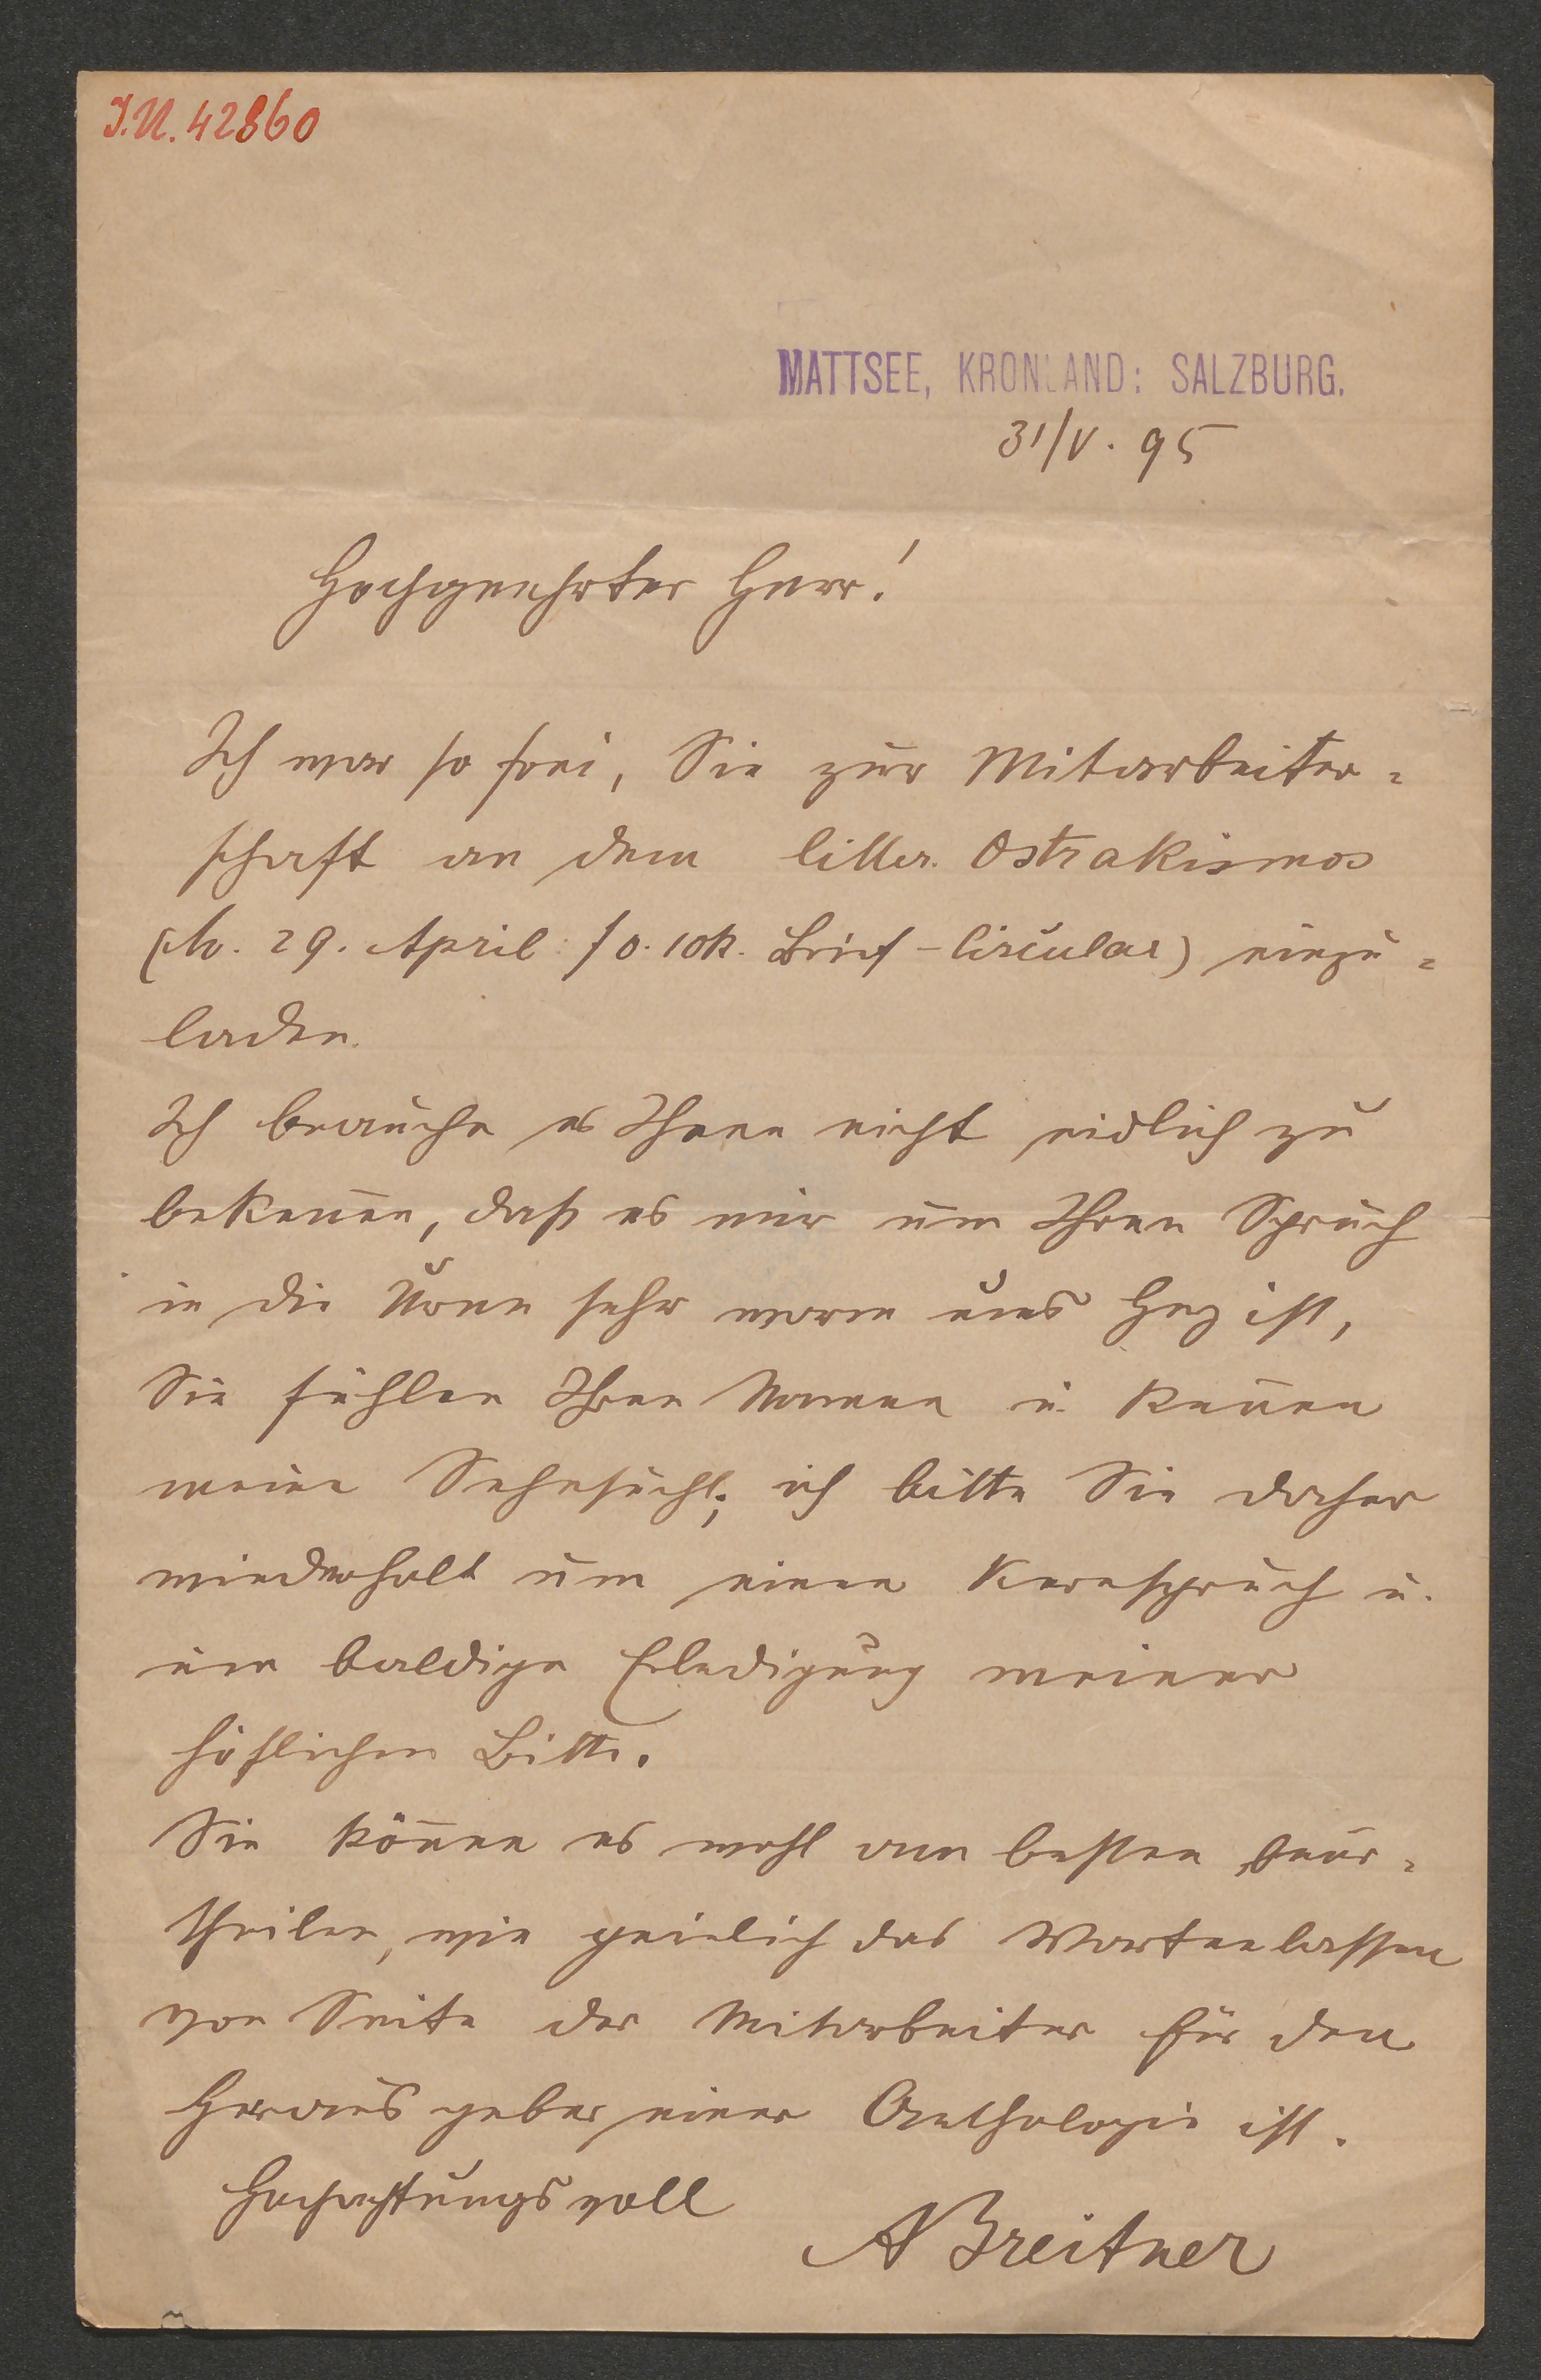 I.N. 42860
MATTSEE, KRONLAND: SALZBURG.
31/V. 95
Hochgeehrter Herr!
Ich war so frei, Sie zur Mitarbeiter=
schaft an dem litter. Ostrakismos
29. April Brief-Circular) einzu=
laden.
Ich brauche es Ihnen nicht eidlich zu
bekennen, daß es mir um Ihren Spruch
in die Urne sehr warm ums Herz ist,
Sie fühlen Ihren Namen u. kennen
meine Sehnsucht; ich bitte Sie daher
wiederholt um einen Kernspruch u.
um baldige Erledigung meiner
höflichen Bitte.
Sie können es wohl am besten beur=
theilen, wie peinlich das Wartenlassen
von Seite der Mitarbeiter für den
Herausgeber einer Anthologie ist.
Hochachtungsvoll
A Breitner